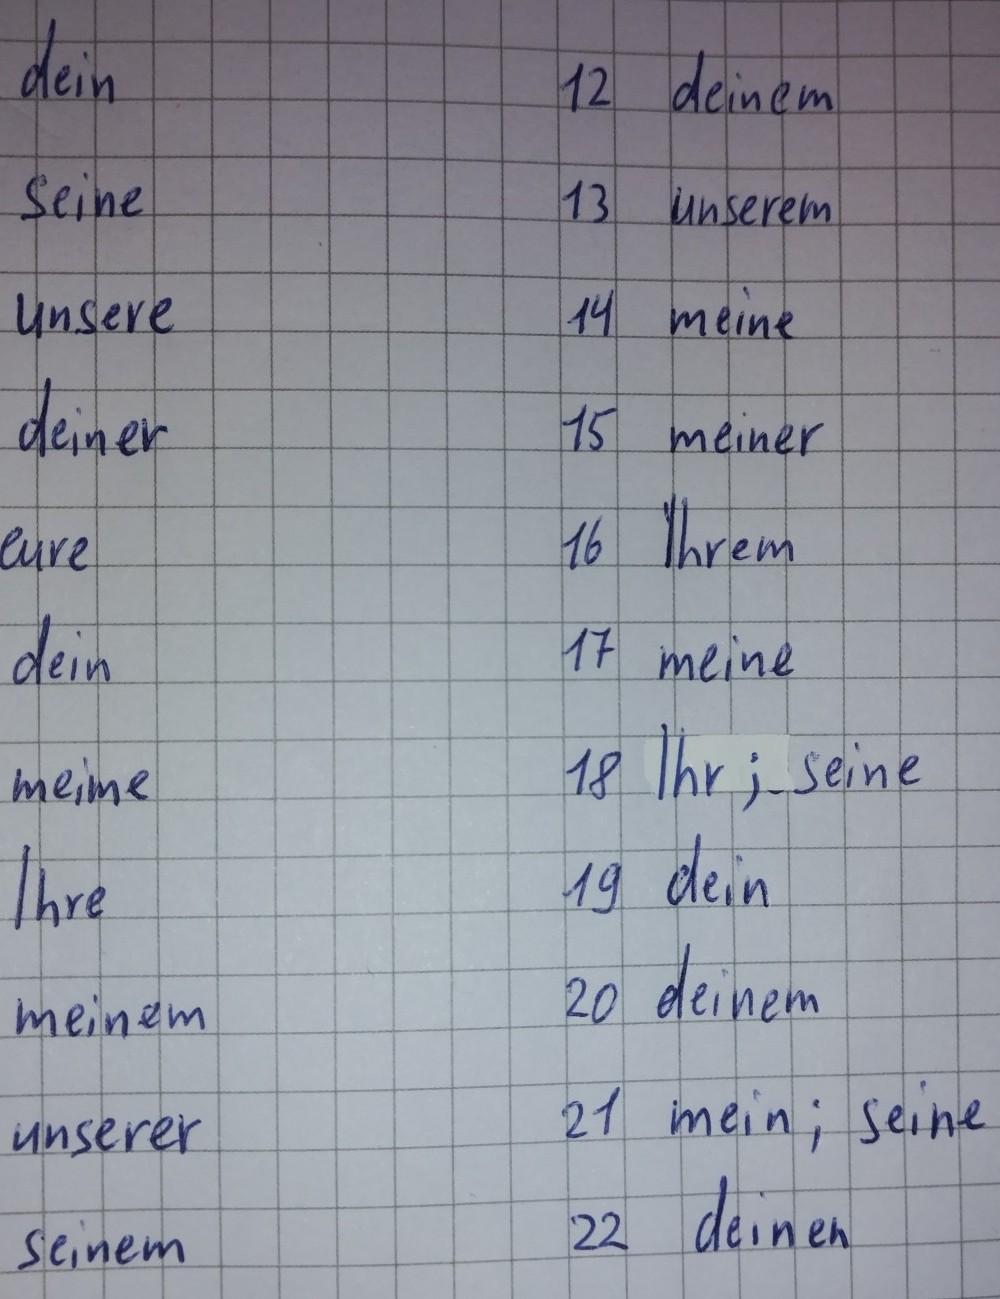 dein
seine
unsere
deiner
eure
dein
meime
Ihre
meinem
unserer
seinem
12 deinem
13 unserem
14 meine
15 meiner
16 Ihrem
17 meine
18 Ihr; seine
19 dein
20 deinem
21 mein; seine
22 deinen